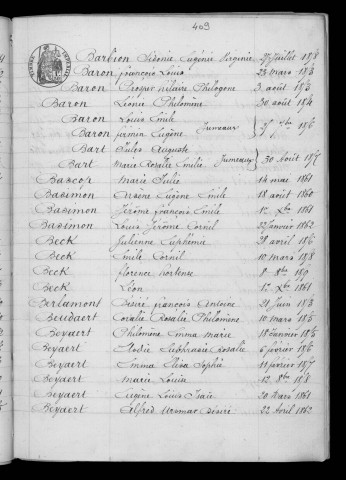 409
Barbion Sidonie Eugénie Virginie 27 Juillet
Baron françois Louis 23 mars 1873
Baron Prosper hilaire Philogone 3 août 1873
Baron Léonie Philomène 30 août 1874
Baron Louis Emile
Baron firmin Eugène Jumeaux 7bre 1876
Bart Jules Auguste
Bart Marie Rosalie Emilie Jumeaux 30 Août
Bascop Marie Julie 14 mai 1861
Basimon Arsène Eugène Emile 18 août 1860
Basimon Jérôme françois Emile 1er Xbre 1861
Basimon Louis Jérôme Cornil Janvier 1862
Beck Julienne Euphémie avril
Beck Emile Cornil 10 mars 1878
Beck florence hortense 8 8bre
Beck Léon 1er Xbre 1861
Berlamont Désiré françois Antoine 21 Juin 1873
Beudaert Coralie Rosalie Philomène 10 mars 1875
Beyaert Philomène Emma Marie Janvier
Beyaert Elodie Euphrasie Rosalie 6 février
Beyaert Emma Elisa Sophie 11 février 1877
Beyaert Marie Louise 12 8bre
Beyaert Eugène Louis Isaïe 20 Mars 1861
Beyaert Alfred Ursmar Désiré 22 Avril 1862